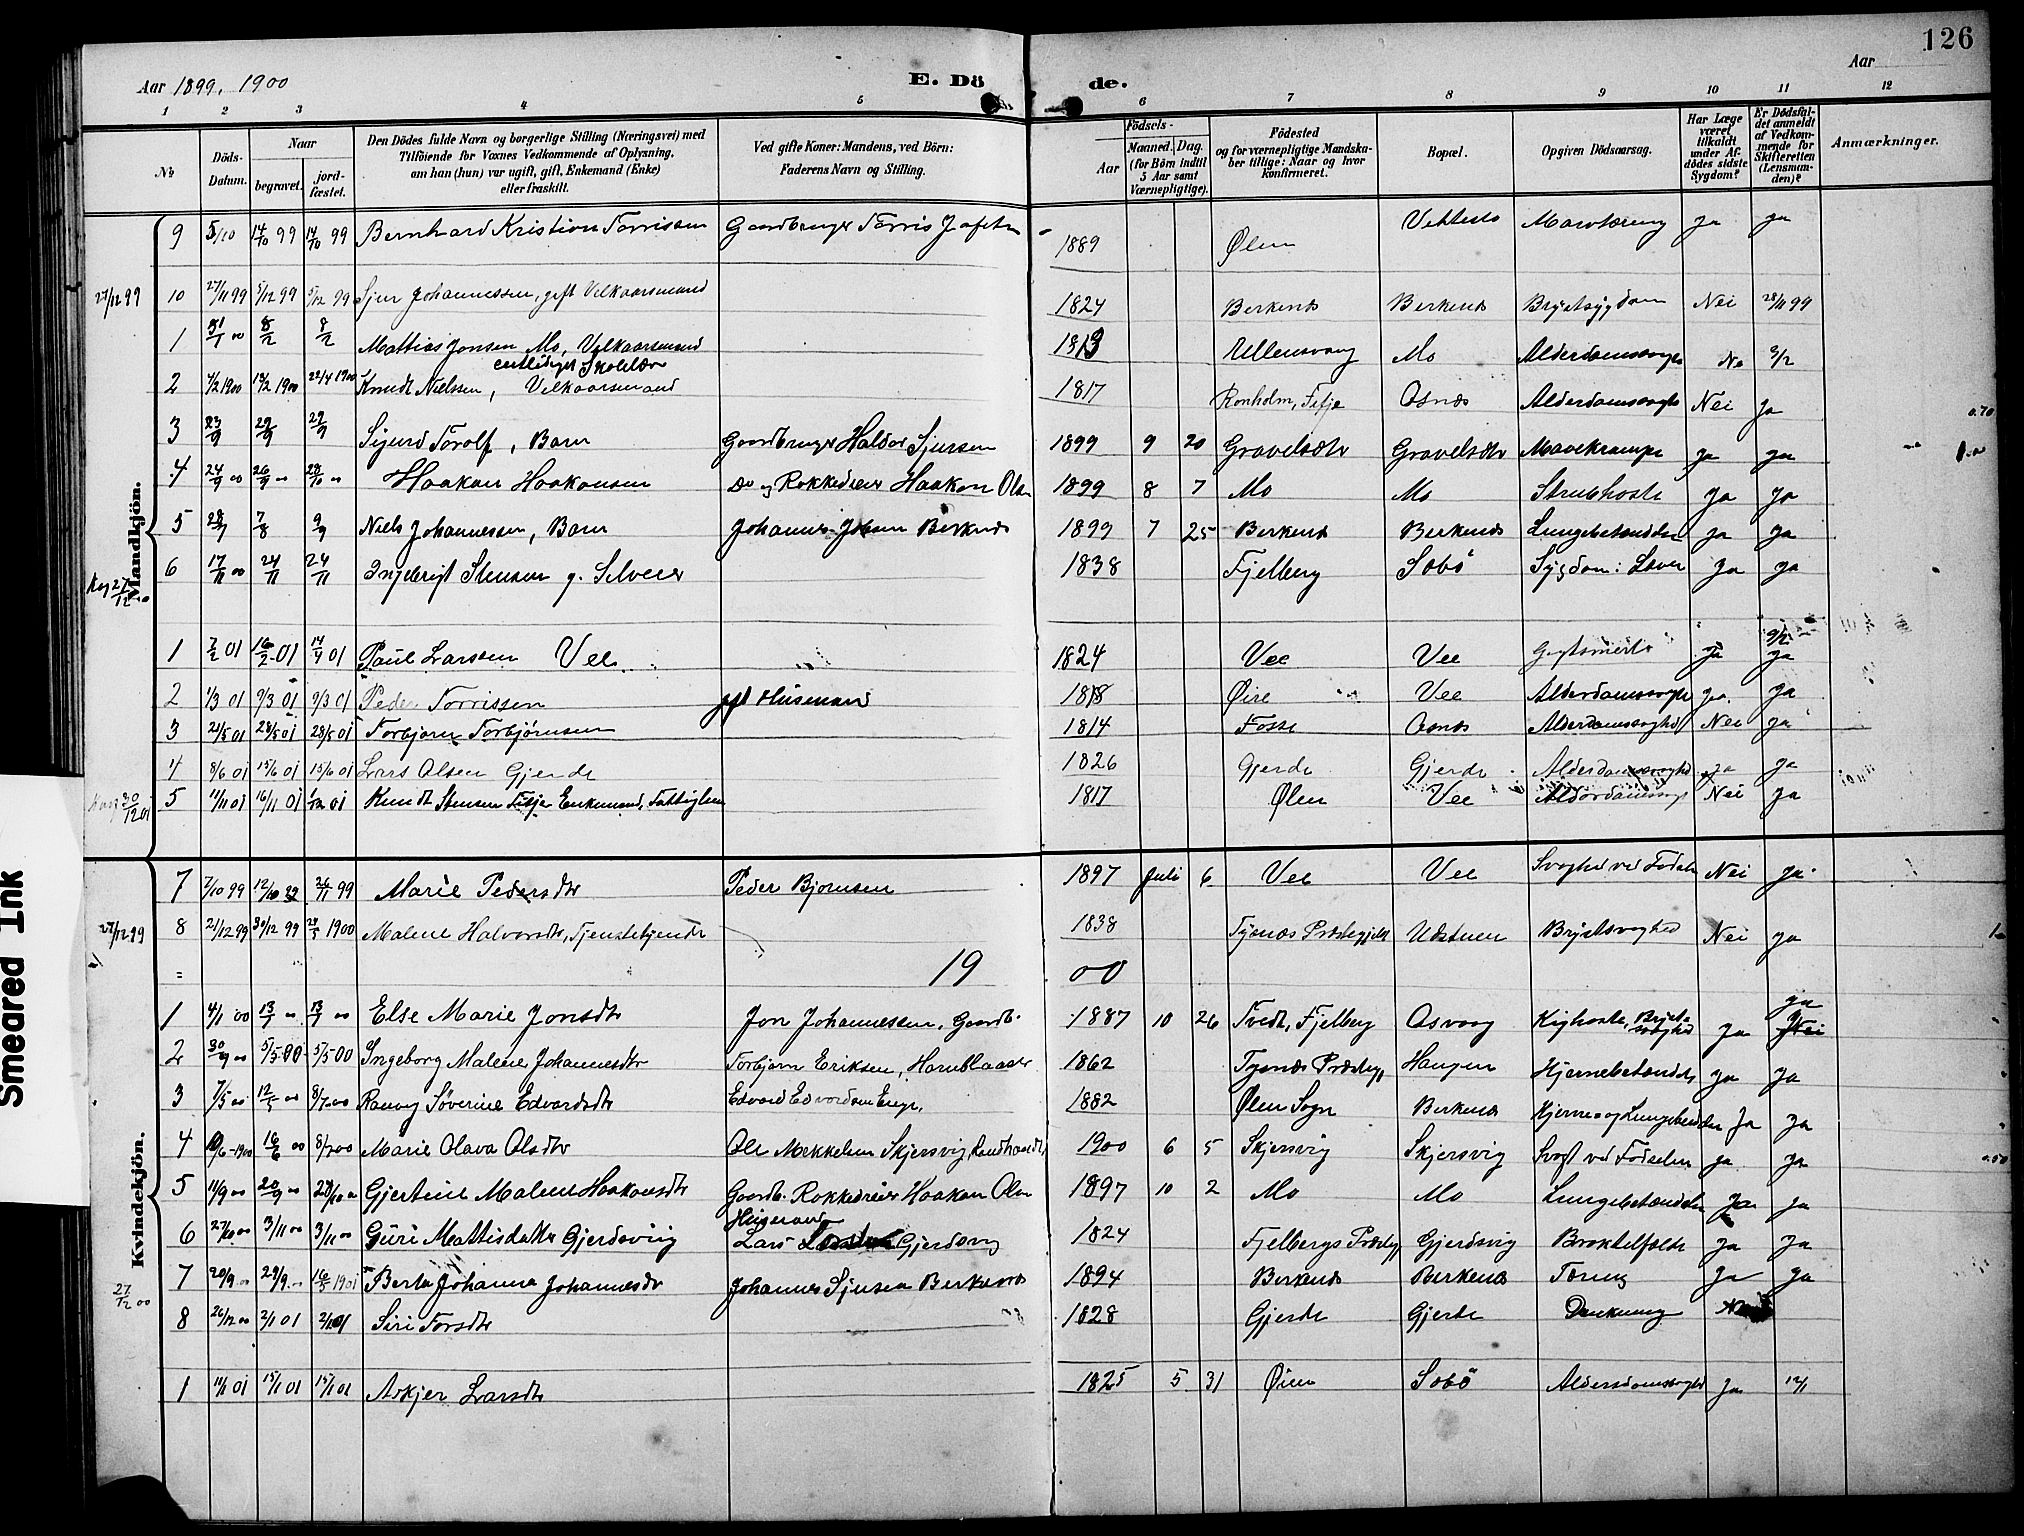 126
Aar 1899, 1900
E. Dö de.
Aar
1 2 3 4 5 6 7 8 9 10 11 12
No
Döds-Datum.
Naar
begravet.
jord-fæstet.
Den Dödes fulde Navn og borgerlige Stilling (Næringsvei) med
Tilföiende for Voxnes Vedkommende af Oplysning,
om han (hun) var ugift, gift, Enkemand (Enke)
eller fraskilt.
Ved gifte Koner: Mandens, ved Börn:
Faderens Navn og Stilling.
Födsels-
Aar
Maaned. Dag.
(for Börn indtil
5 Aar samt
Værnepligtige).
Födested
og for værnepligtige Mandska-
ber tillige: Naar og hvor
konfirmeret.
Bopæl.
Opgiven Dödsaarsag.
Har Læge
været
tilkaldt
under Af-
dödes sidste
Sygdom?
Er Dödsfal-
det anmeldt
af Vedkom-
mende for
Skifteretten
(Lensman-
den)?
Anmærkninger.
Mandkjön.
9 5/10 14/10 99 14/10 99 Bernhard Kristian Torrissen Gaardbruger Torris 1889 Ølen Marvtæring ja ja
27/12 99
10 27/11 99 5/12 99 5/12 99 Sjur Johannessen, gift Velkaarsmand 1824 Berkenes Berkenes Brystsygdom Nei 28/11 99
1 31/1 00 8/2 8/2 Mattias Jonsen Mo, Velkaarsmand 1813 Ullensvang Mo Alderdomssvaghed 3/2
entlediget Skolelær
2 4/2 1900 12/2 1900 22/4 1900 Knudt Nielssen, Velkaarsmand 1817 Ronholm, Fitje Osnes Alderdomssvaghed Nei ja
0.70
3 23/9 29/9 29/9 Sigurd Torolf, Barn Gaardbruger Haldor Sjursen 1899 9 20 Gravelsæter Gravelsæter Mavekrampe ja ja
4 24/9 00 26/9 00 28/10 00 Haakon Haakonsen Do og Rokkedreier Haakon Olsn 1899 8 7 Mo Mo Strubehoste ja ja
5 28/7 7/8 9/9 Niels Johannessen, Barn Johannes Berkenes 1899 7 25 Berkenes Berkenes Lungebetændelse ja ja
6 17/11 00 24/11 24/11 Ingebrigt Stensen g. Selveier 1838 Fjelberg Söbö Sygdom i Lever ja ja
1 7/2 01 16/2 01 14/4 01 Paul Larssen Vee 1824 Vee Vee ja ja
2 1/3 01 9/3 01 9/3 01 Peder Torrissen gift Husmand 1818 Øire Vee Alderdomssvaghed ja ja
3 21/5 01 28/5 01 28/5 01 Torbjørn Torbjørnsen 1814 Fosse Osnes Alderdomssvaghed Nei ja
4 8/6 01 15/6 01 15/6 01 Lars Olsen Gjerde 1826 Gjerde Gjerde Alderdomssvaghed ja ja
5 11/11 01 16/11 01 1/12 01 Knudt Stensen Fitje Enkemand, Fattiglem 1817 Ølen Vee Alderdomssvagh Nei ja
Kvindekjön.
7 7/10 99 12/10 99 26/11 99 Marie Pedersdtr Peder Bjørnsen 1897 Juli 6 Vee Vee Svaghed ved Fødsel Nei ja
27/12 99
8 21/12 99 30/12 99 1900 Malene Halvorsdtr, Tjenestetjende 1838 Tysnæs Præstegjeld Udstuen Brystsvaghed Nei ja
1900
1 4/1 00 13/1 00 13/1 00 Else Marie Jonsdtr Jon Johannessen, Gaardb. 1887 10 26 Tvedt, Fjelberg Osvaag Kighoste, Brystsvaghed ja ja Nei
2 5/5 00 5/5 00 Ingeborg Malene Johannesdtr Torbjørn Eriksen, Hornblaaser 1862 Tysnæs Præstegj Haugen Hjernebetændelse ja ja
3 7/5 00 12/5 00 8/7 00 Ranvg Søverine Edvardsdtr Edvard Edvardsen 1882 Ølen Sogn Berkenes Hjerne og Lungebetændelse Ja ja
4 10/6 1900 16/6 00 8/7 00 Marie Olava Olsdtr Ole Mikkelsen Skjersvig, Landhandl. 1900 6 5 Skjersvig Skjersvig Svagt ved Fødselen ja ja
0.50
5 11/9 00 20/9 00 28/10 00 Gjertine Malene Haakonsdtr Gaardb. Rokkedreier Haakon Olsn 1897 10 2 Mo Mo Lungebetændelse ja ja
Husmand
6 27/10 00 3/11 00 3/11 00 Guri Mattisdatter Gjerdsvig Lars Gjerdsvig 1824 Fjelbergs Præstegj Gjerdsvig Broktilfælde ja ja
7 20/9 00 29/9 00 16/5 1901 Berta Johanna Johannesdtr Johannes Sjursen Berkenes 1894 Berkenes Berkenes Tæring ja ja
27/12 00
8 26/12 00 2/1 01 2/1 01 Siri Torsdtr 1828 Gjerde Gjerde
1 11/1 01 15/1 01 15/1 01 Askjer Larsdtr 1825 5 31 Øien Söbö Aldersdomssvaghed Ja 12/1
Smeared Ink